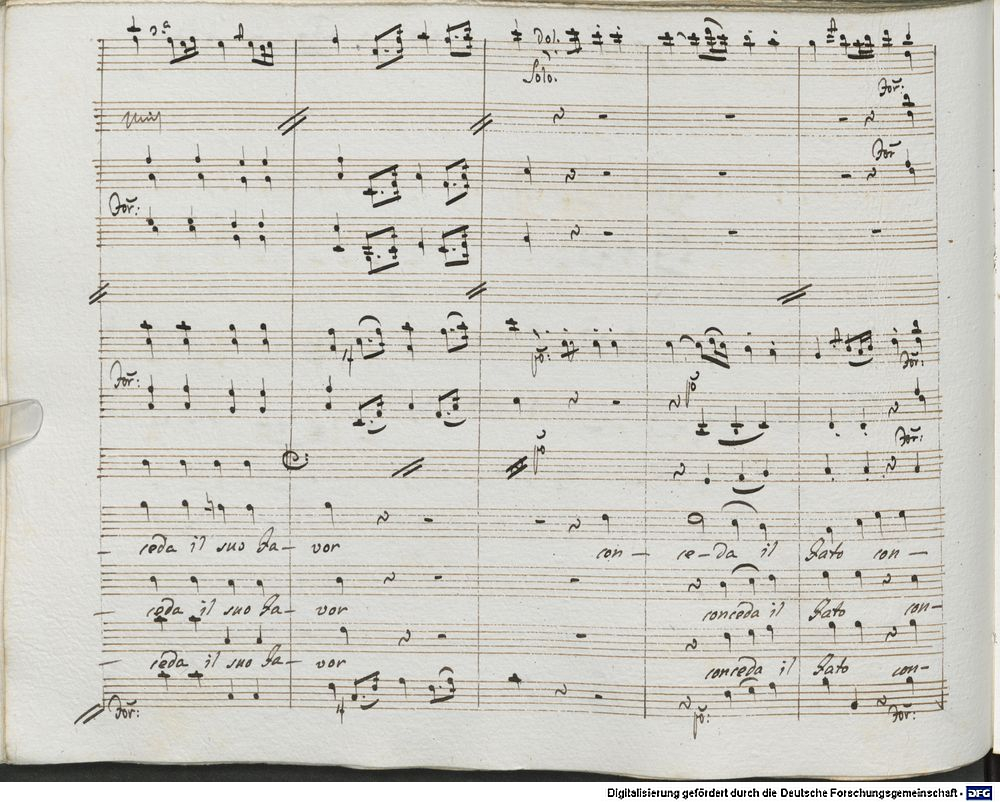 Dol.
Solo.
For:
unis
For
For:
4
po:
For:
For:
po
For:
po
ceda il suo fa- vor con- ce-da il fato con-
ceda il suo fa- vor conceda il fato con-
ceda il suo fa- vor conceda il fato con-
For: 4 po: For:
Digitalisierung gefördert durch die Deutsche Forschungsgemeinschaft - DFG